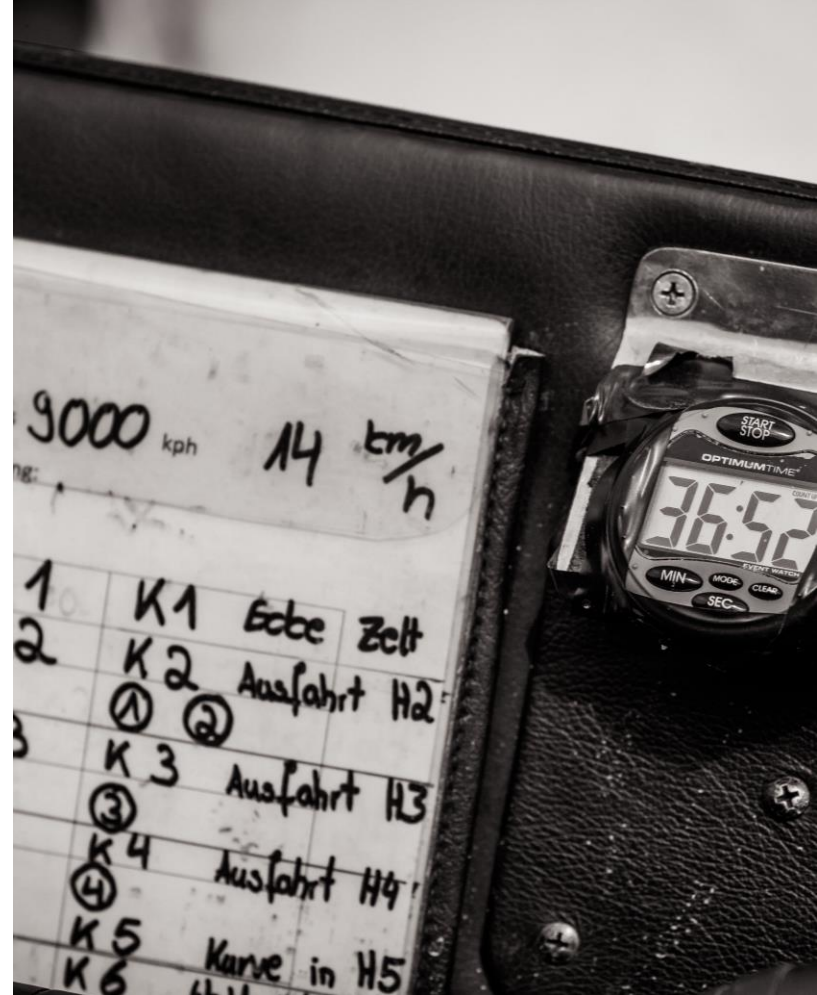 9000 kph 14 km/h
ng:
1 K1 Ecke Zelt
2 K2 Ausfahrt H2
① ②
3 K3 Ausfahrt H3
③
K4 Ausfahrt H4
④
K5 Kurve in H5
K6
START
STOP
OPTIMUMTIME
COUNT U
36:52
EVENT WATCH
MIN MODE CLEAR
SEC